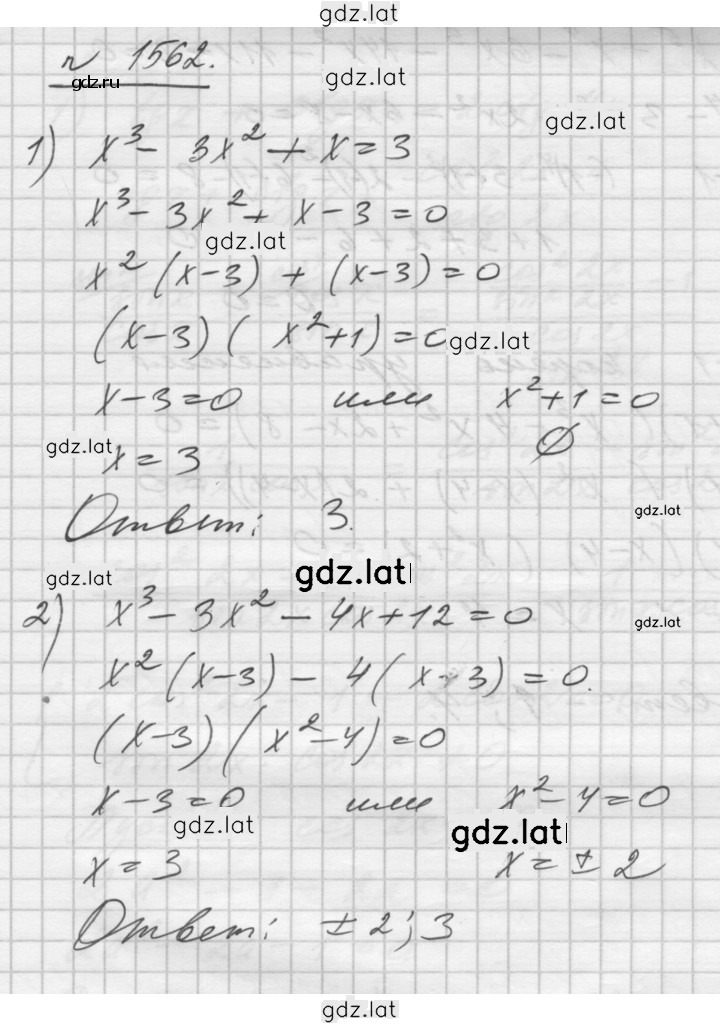 gdz.lat
№ 1562.
gdz.ru
gdz.lat
1) x³ - 3x² + x = 3
gdz.lat
x³ - 3x² + x - 3 = 0
gdz.lat
x² (x-3) + (x-3) = 0
(x-3) ( x²+1) = 0
gdz.lat
x-3=0 или x²+1=0
gdz.lat
x = 3 ∅
Ответ: 3.
gdz.lat
gdz.lat
gdz.lat
2) x³ - 3x² - 4x+12 = 0
gdz.lat
x² (x-3) - 4 (x-3) = 0.
(x-3) (x²-4) = 0
x-3=0 или x²-4=0
gdz.lat
gdz.lat
x = 3 x = ± 2
Ответ: ± 2; 3
gdz.lat